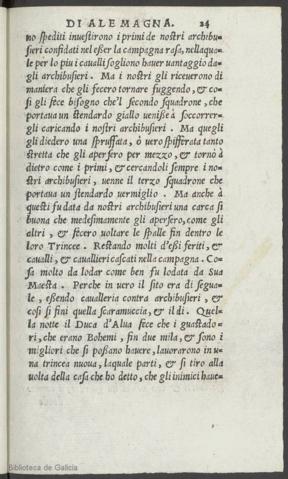 DI ALEMAGNA. 24
no spediti inuestirono i primi de nostri archibu=
sieri confidati nel eßer la campagna rasa, nellaqua=
le per lo piu i caualli sogliono hauer uantaggio da=
gli archibusieri. Ma i nostri gli riceuerono di
maniera che gli fecero tornare fuggendo, & co=
si gli fece bisogno che'l secondo squadrone, che
portaua un stendardo giallo uenißè à soccorrer=
gli caricando i nostri archibusieri. Ma quegli
gli diedero una spruffata, ò uero spifferata tanto
stretta che gli apersero per mezzo, & tornò à
dietro come i primi, & cercandoli sempre i no=
stri archibusieri, uenne il terzo squadrone che
portaua un stendardo uermiglio. Ma anche à
questi fu data da nostri archibusieri una carca si
buona che medesimamente gli apersero, come gli
altri, & fecero uoltare le spalle fin dentro le
loro Trincee. Restando molti d'eßi feriti, &
caualli, & cauallieri cascati nella campagna. Co=
sa molto da lodar come ben fu lodata da Sua
Maesta. Perche in uero il sito era di segua=
le, eßendo caualleria contra archibusieri, &
cosi si fini quella scaramuccia, & il di. Quel=
la notte il Duca d'Alua fece che i guastado=
ri, che erano Bohemi, fin due mila, & sono i
migliori che si poßano hauere, lauorarono in u=
na trincea nuoua, laquale parti, & si tiro alla
uolta della casa che ho detto, che gli inimici haue=
Biblioteca de Galicia